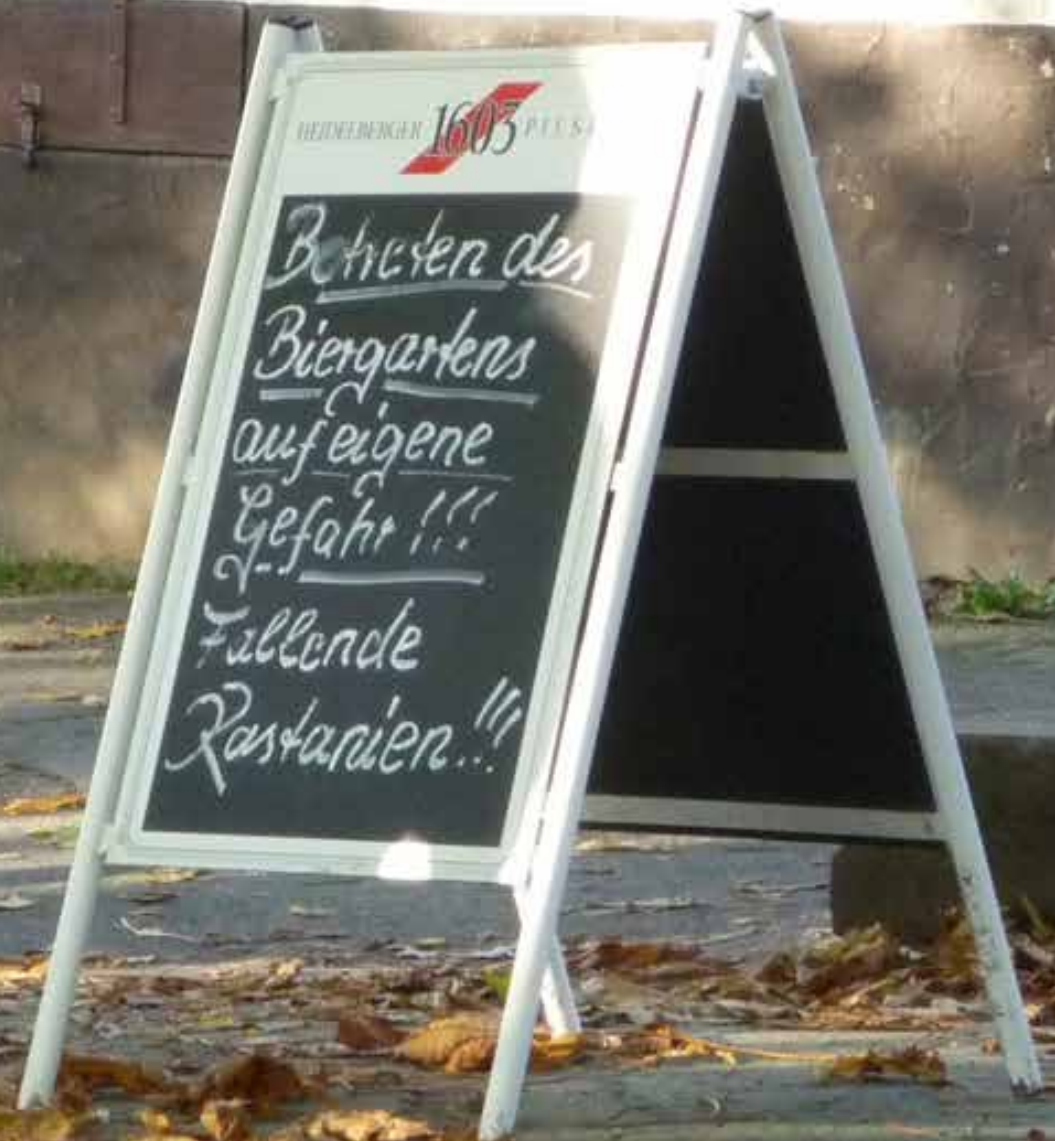 HEIDELBERGER 1603 PILS
Betreten des
Biergartens
auf eigene
Gefahr!!!
Fallende
Kastanien!!!